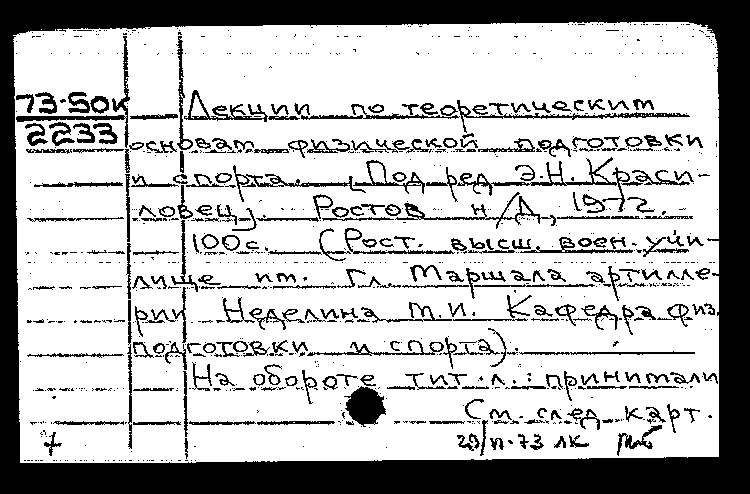 73-50к Лекции по теоретическим
2233 основам физической подготовки
и спорта. [Под ред Э.Н. Краси-
ловец]. Ростов н/Д, 1972.
100с. (Рост. высш. воен. учи-
лище им. Гл. Маршала артилле-
рии Неделина М.И. Кафедра физ.
подготовки и спорта).
На обороте тит.л.: принимали
См. след. карт.
+ 29/II-73 ЛК